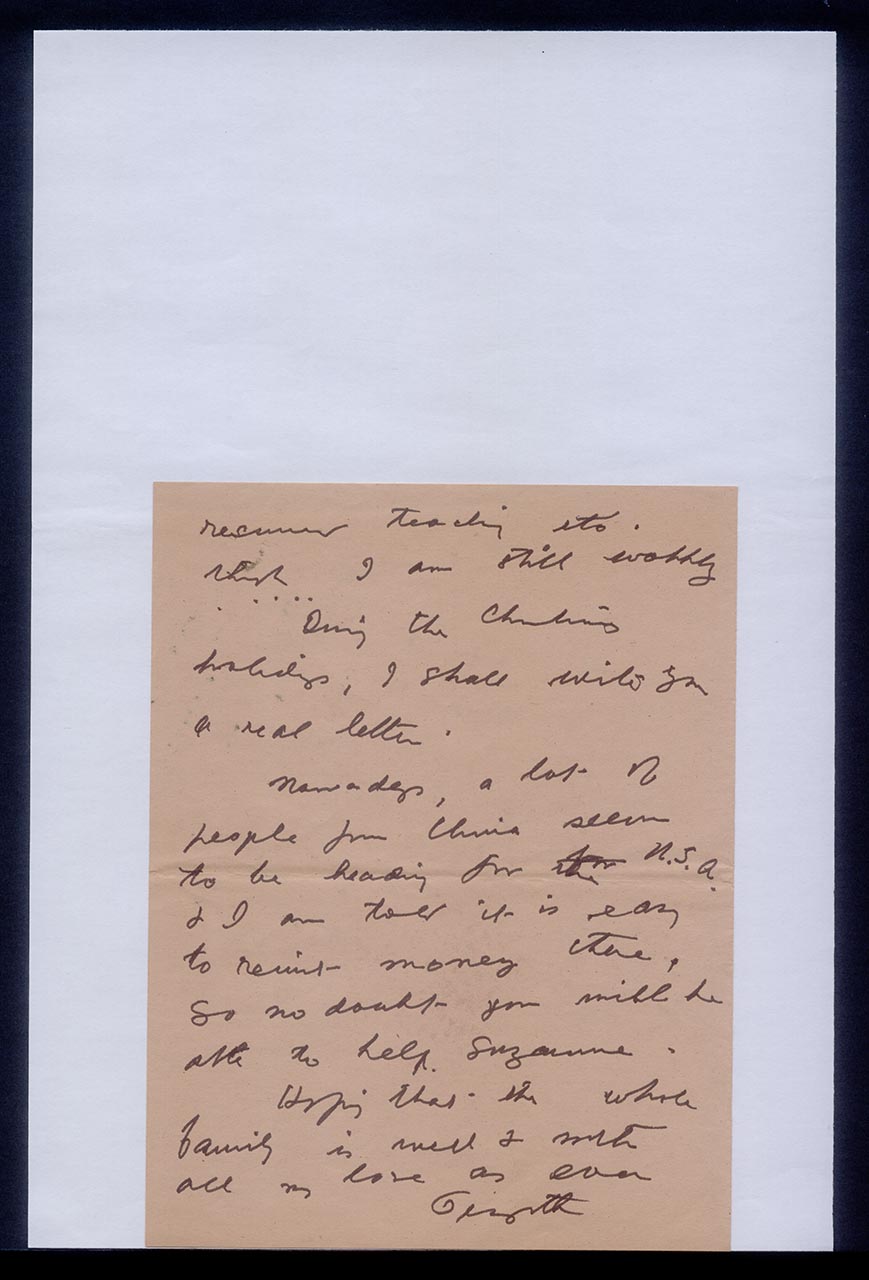 resumed teaching etc.
though I am still wobbly
.....
During the Christmas
holidays, I shall write you
a real letter.
Nowadays, a lot of
people from China seem
to be heading for U.S.A.
& I am told it is easy
to remit money there,
so no doubt you will be
able to help Suzanne.
Hoping that the whole
family is well & with
all my love as ever